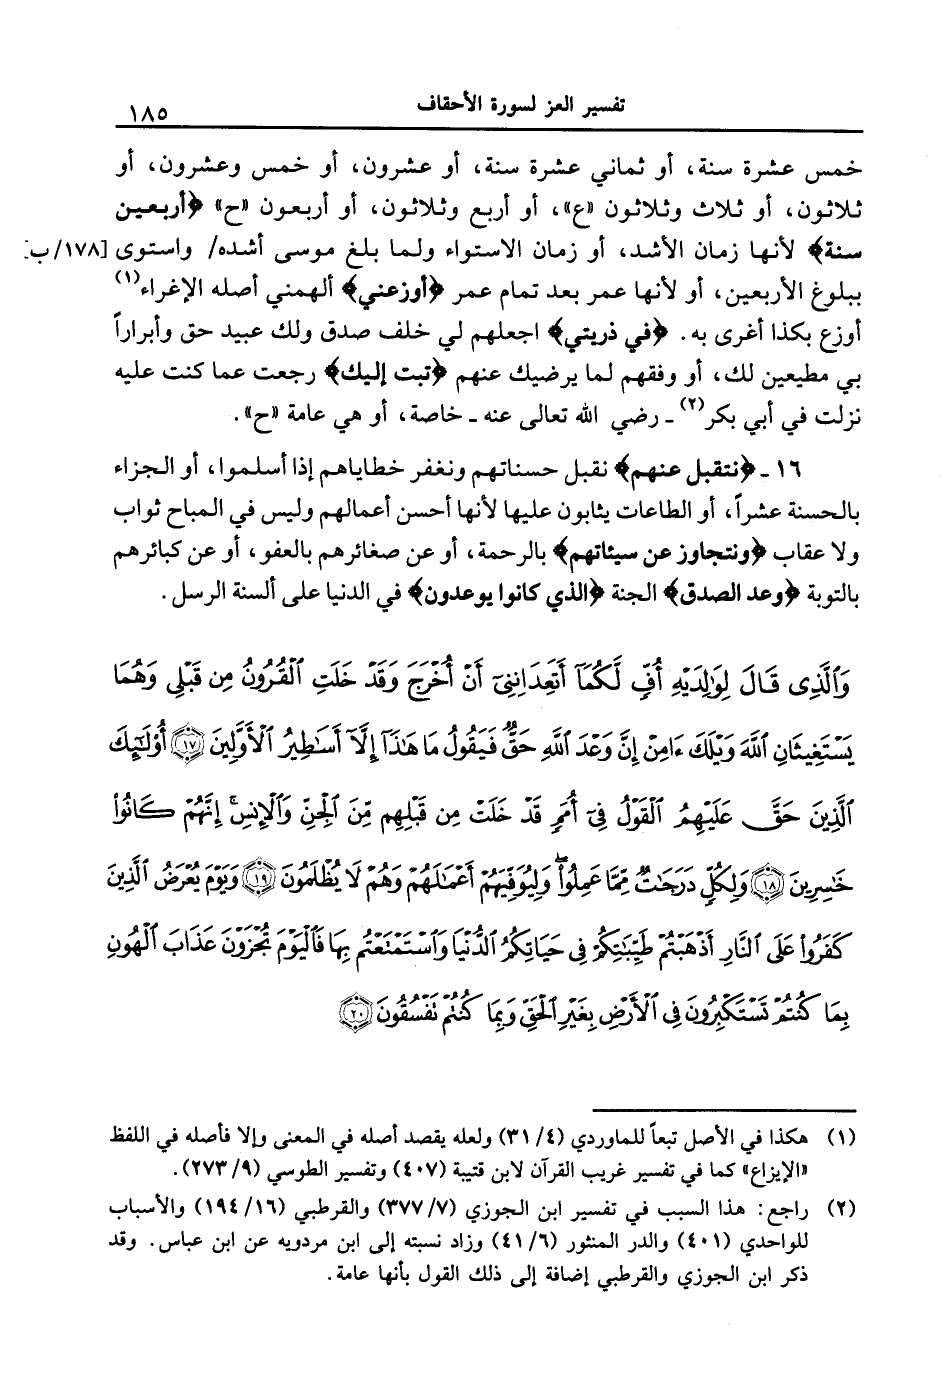 تفسير العز لسورة الأحقاف ١٨٥
خمس عشرة سنة، أو ثماني عشرة سنة، أو عشرون، أو خمس وعشرون، أو
ثلاثون، أو ثلاث وثلاثون «ع»، أو أربع وثلاثون، أو أربعون «ح» ﴿أربعين
سنة﴾ لأنها زمان الأشد، أو زمان الاستواء ولما بلغ موسى أشده/ واستوى [١٧٨/ب]
ببلوغ الأربعين، أو لأنها عمر بعد تمام عمر ﴿أوزعني﴾ ألهمني أصله الإغراء(١)
أوزع بكذا أغرى به. ﴿في ذريتي﴾ اجعلهم لي خلف صدق ولك عبيد حق وأبراراً
بي مطيعين لك، أو وفقهم لما يرضيك عنهم ﴿تبت إليك﴾ رجعت عما كنت عليه
نزلت في أبي بكر(٢) ـ رضي الله تعالى عنه ـ خاصة، أو هي عامة «ح».
١٦ ـ ﴿نتقبل عنهم﴾ نقبل حسناتهم ونغفر خطاياهم إذا أسلموا، أو الجزاء
بالحسنة عشراً، أو الطاعات يثابون عليها لأنها أحسن أعمالهم وليس في المباح ثواب
ولا عقاب ﴿ونتجاوز عن سيئاتهم﴾ بالرحمة، أو عن صغائرهم بالعفو، أو عن كبائرهم
بالتوبة ﴿وعد الصدق﴾ الجنة ﴿الذي كانوا يوعدون﴾ في الدنيا على ألسنة الرسل.
وَٱلَّذِى قَالَ لِوَٰلِدَيْهِ أُفٍّ لَّكُمَآ أَتَعِدَانِنِىٓ أَنْ أُخْرَجَ وَقَدْ خَلَتِ ٱلْقُرُونُ مِن قَبْلِى وَهُمَا
يَسْتَغِيثَانِ ٱللَّهَ وَيْلَكَ ءَامِنْ إِنَّ وَعْدَ ٱللَّهِ حَقٌّ فَيَقُولُ مَا هَٰذَآ إِلَّآ أَسَٰطِيرُ ٱلْأَوَّلِينَ ١٧ أُو۟لَٰٓئِكَ
ٱلَّذِينَ حَقَّ عَلَيْهِمُ ٱلْقَوْلُ فِىٓ أُمَمٍ قَدْ خَلَتْ مِن قَبْلِهِم مِّنَ ٱلْجِنِّ وَٱلْإِنسِ ۖ إِنَّهُمْ كَانُوا۟
خَٰسِرِينَ ١٨ وَلِكُلٍّ دَرَجَٰتٌ مِّمَّا عَمِلُوا۟ ۖ وَلِيُوَفِّيَهُمْ أَعْمَٰلَهُمْ وَهُمْ لَا يُظْلَمُونَ ١٩ وَيَوْمَ يُعْرَضُ ٱلَّذِينَ
كَفَرُوا۟ عَلَى ٱلنَّارِ أَذْهَبْتُمْ طَيِّبَٰتِكُمْ فِى حَيَاتِكُمُ ٱلدُّنْيَا وَٱسْتَمْتَعْتُم بِهَا فَٱلْيَوْمَ تُجْزَوْنَ عَذَابَ ٱلْهُونِ
بِمَا كُنتُمْ تَسْتَكْبِرُونَ فِى ٱلْأَرْضِ بِغَيْرِ ٱلْحَقِّ وَبِمَا كُنتُمْ تَفْسُقُونَ ٢٠
(١) هكذا في الأصل تبعاً للماوردي (٤/ ٣١) ولعله يقصد أصله في المعنى وإلا فأصله في اللفظ
«الإيزاع» كما في تفسير غريب القرآن لابن قتيبة (٤٠٧) وتفسير الطوسي (٩/ ٢٧٣).
(٢) راجع: هذا السبب في تفسير ابن الجوزي (٧/ ٣٧٧) والقرطبي (١٦/ ١٩٤) والأسباب
للواحدي (٤٠١) والدر المنثور (٦/ ٤١) وزاد نسبته إلى ابن مردويه عن ابن عباس. وقد
ذكر ابن الجوزي والقرطبي إضافة إلى ذلك القول بأنها عامة.